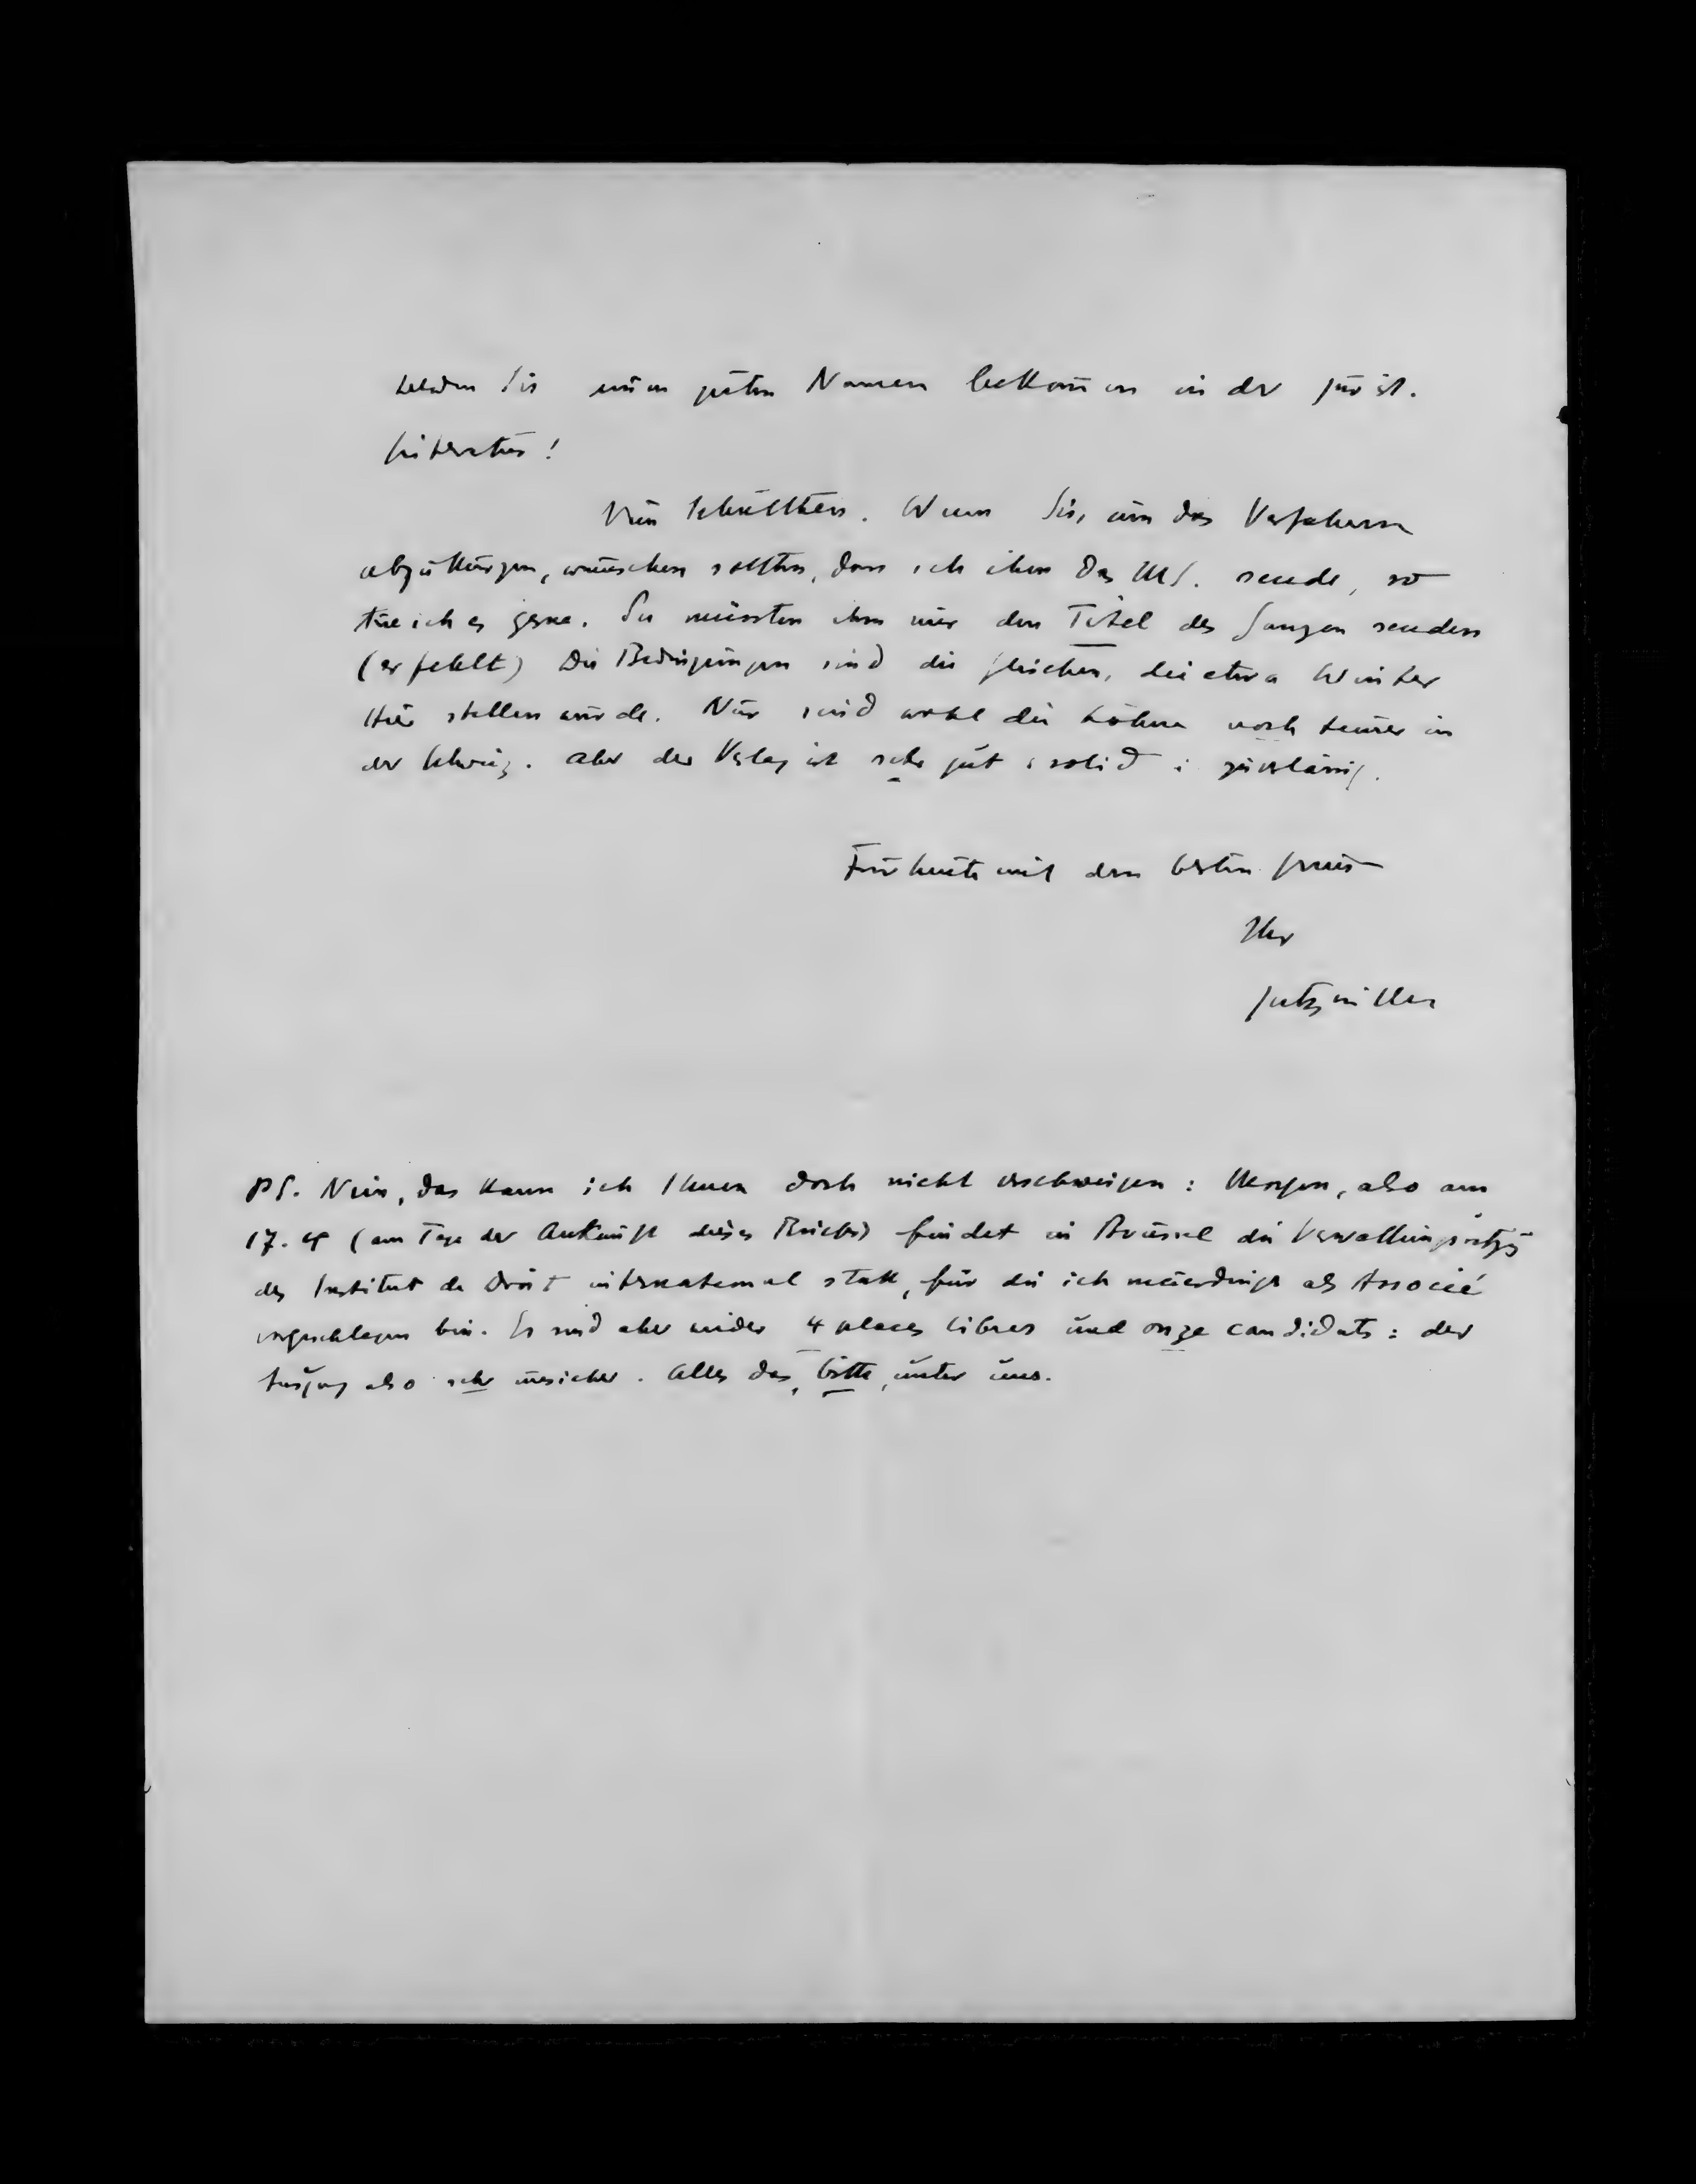 werden Sie einen guten Namen bekommen in der jurist.
Literatur!
Nun Schulthess. Wenn Sie, um das Verfahren
abzukürzen, wünschen sollten, dass ich ihm das MS. sende, so
tue ich es gerne. Sie müssten ihm nur den Titel des Ganzen senden
(er fehlt) Die Bedingungen sind die gleichen, die etwa Winter
Hier stellen würde. Nur sind wohl die Löhne noch teurer in
der Schweiz. Aber der Verlag ist sehr gut & solid & zuverlässig.
Für heute mit dem besten Gruss
Ihr
Gutzwiller
PS. Nein, das kann ich Ihnen doch nicht verschweigen: Morgen, also am
17. 4 (am Tage der Ankunft dieses Briefes) findet in Brüssel die
des Institut de Droit international statt, für die ich neuerdings als Associé
vorgeschlagen bin. Es sind aber wieder 4 places libres und onze candidats: der
Ausgang also sehr unsicher. Alles das, bitte, unter uns.